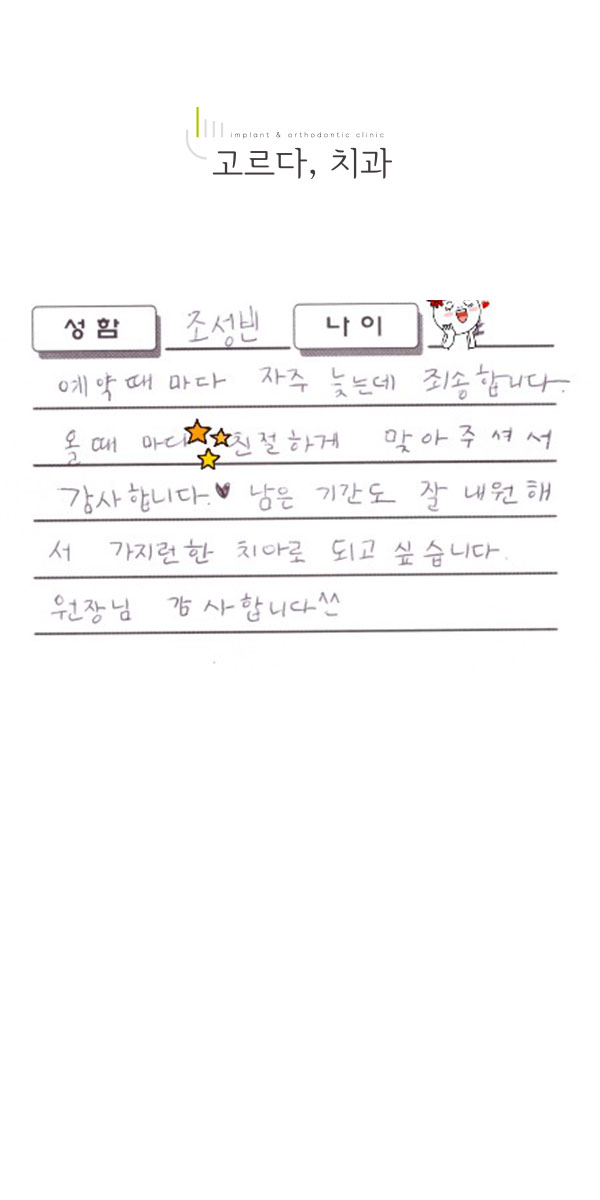 implant & orthodontic clinic
고르다, 치과
성함 조성빈 나이
예약때 마다 자주 늦는데 죄송합니다.
올때 마다 친절하게 맞아주셔서
감사합니다.♥ 남은 기간도 잘 내원해
서 가지런한 치아로 되고 싶습니다.
원장님 감사합니다^^